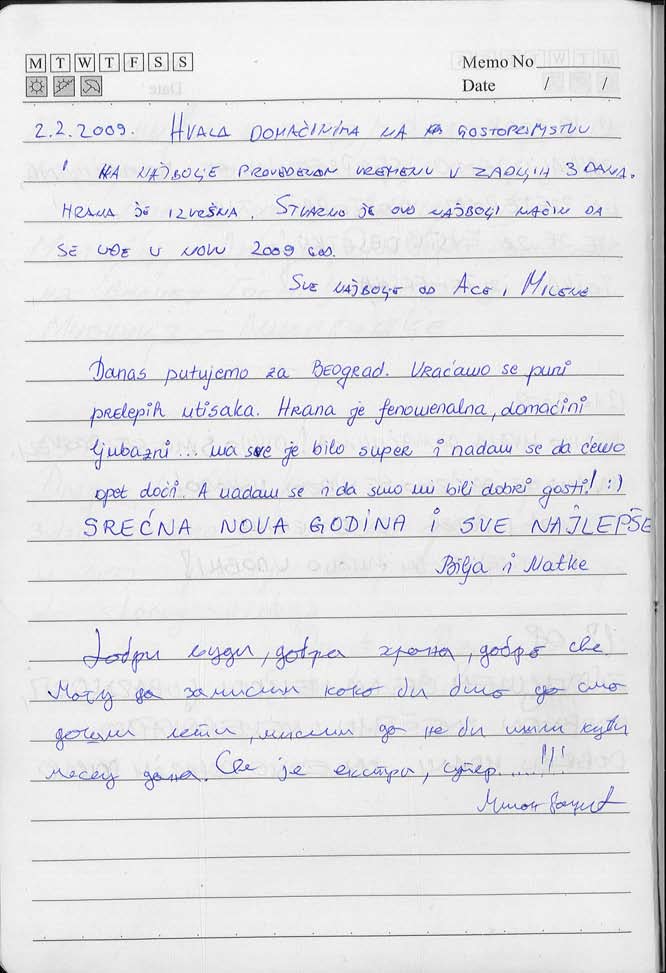 M T W T F S S
Memo No
Date / /
2.2.2009. HVALA DOMAĆINIMA NA GOSTOPRIMSTVU
I NA NAJBOLJE PROVEDENOM VREMENU U ZADNJIH 3 DANA.
HRANA JE IZVRSNA. STVARNO JE OVO NAJBOLJI NAČIN DA
SE UĐE U NOVU 2009 GOD.
SVE NAJBOLJE OD ACE I MILENE
Danas putujemo za BEOgrad. Vraćamo se puni
prelepih utisaka. Hrana je fenomenalna, domaćini
ljubazni... ma sve je bilo super i nadam se da ćemo
opet doći. A nadam se i da smo mi bili dobri gosti! :)
SREĆNA NOVA GODINA I SVE NAJLEPŠE
Bilja i Matke
Добри људи, добра храна, добро све.
Могу да замислим како би било да смо
дошли лети, мислим да не би ишли кући
месец дана. Све је екстра, супер.....!!!
Милан